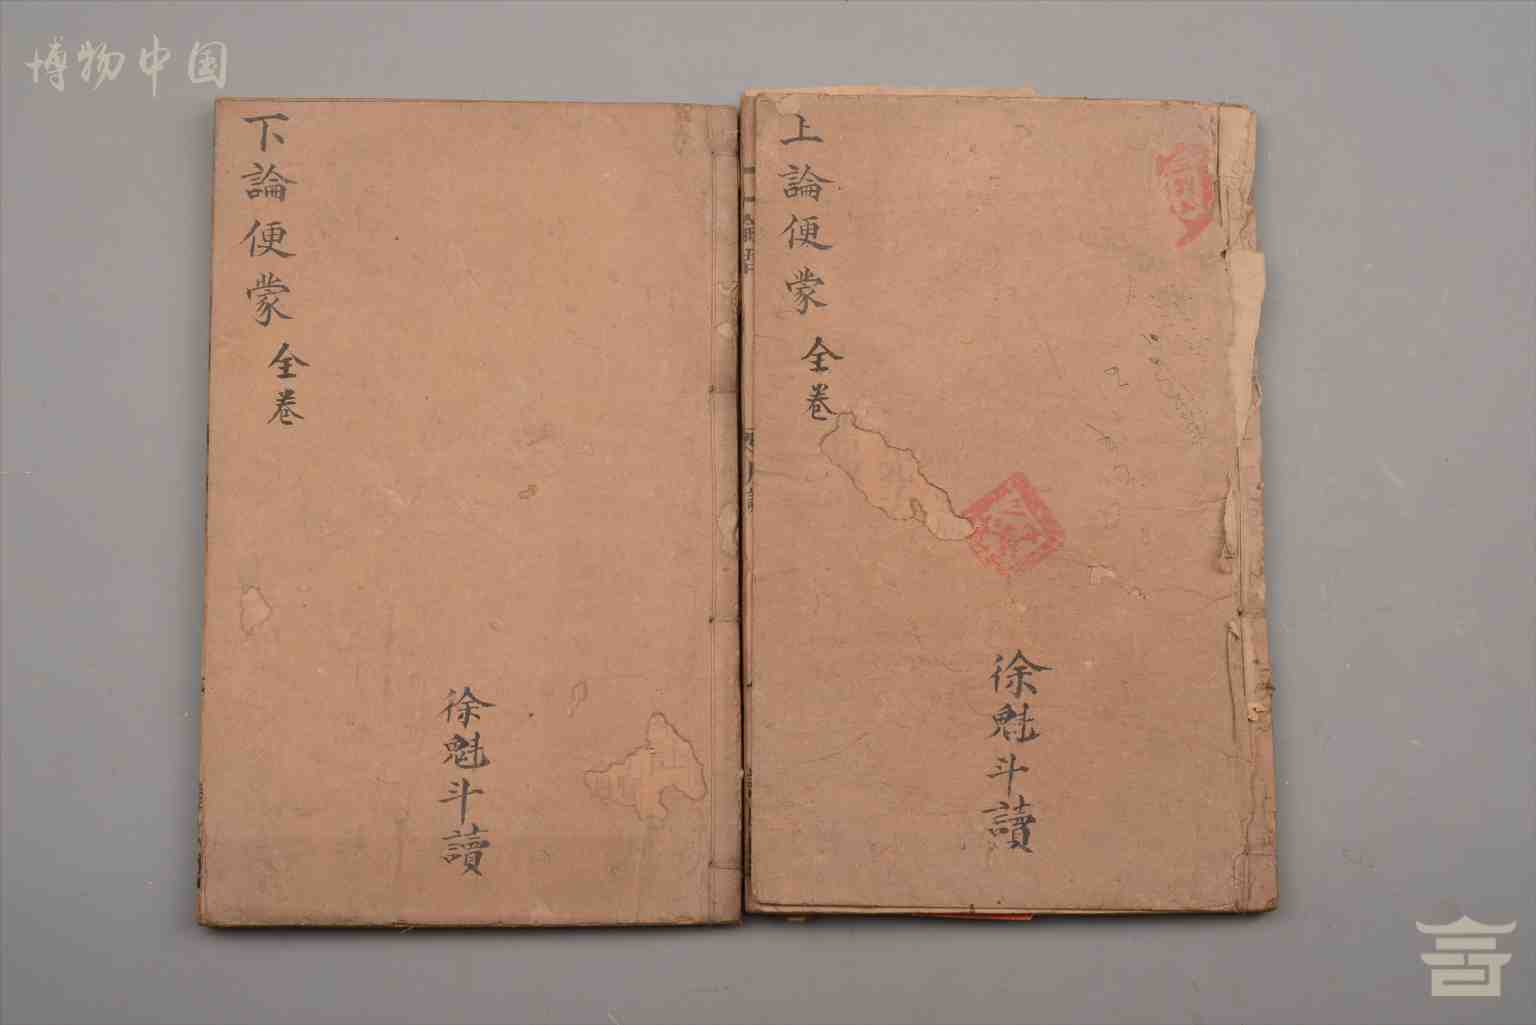 博物中国
上論便蒙
全卷
徐魁斗讀
下論便蒙
全卷
徐魁斗讀